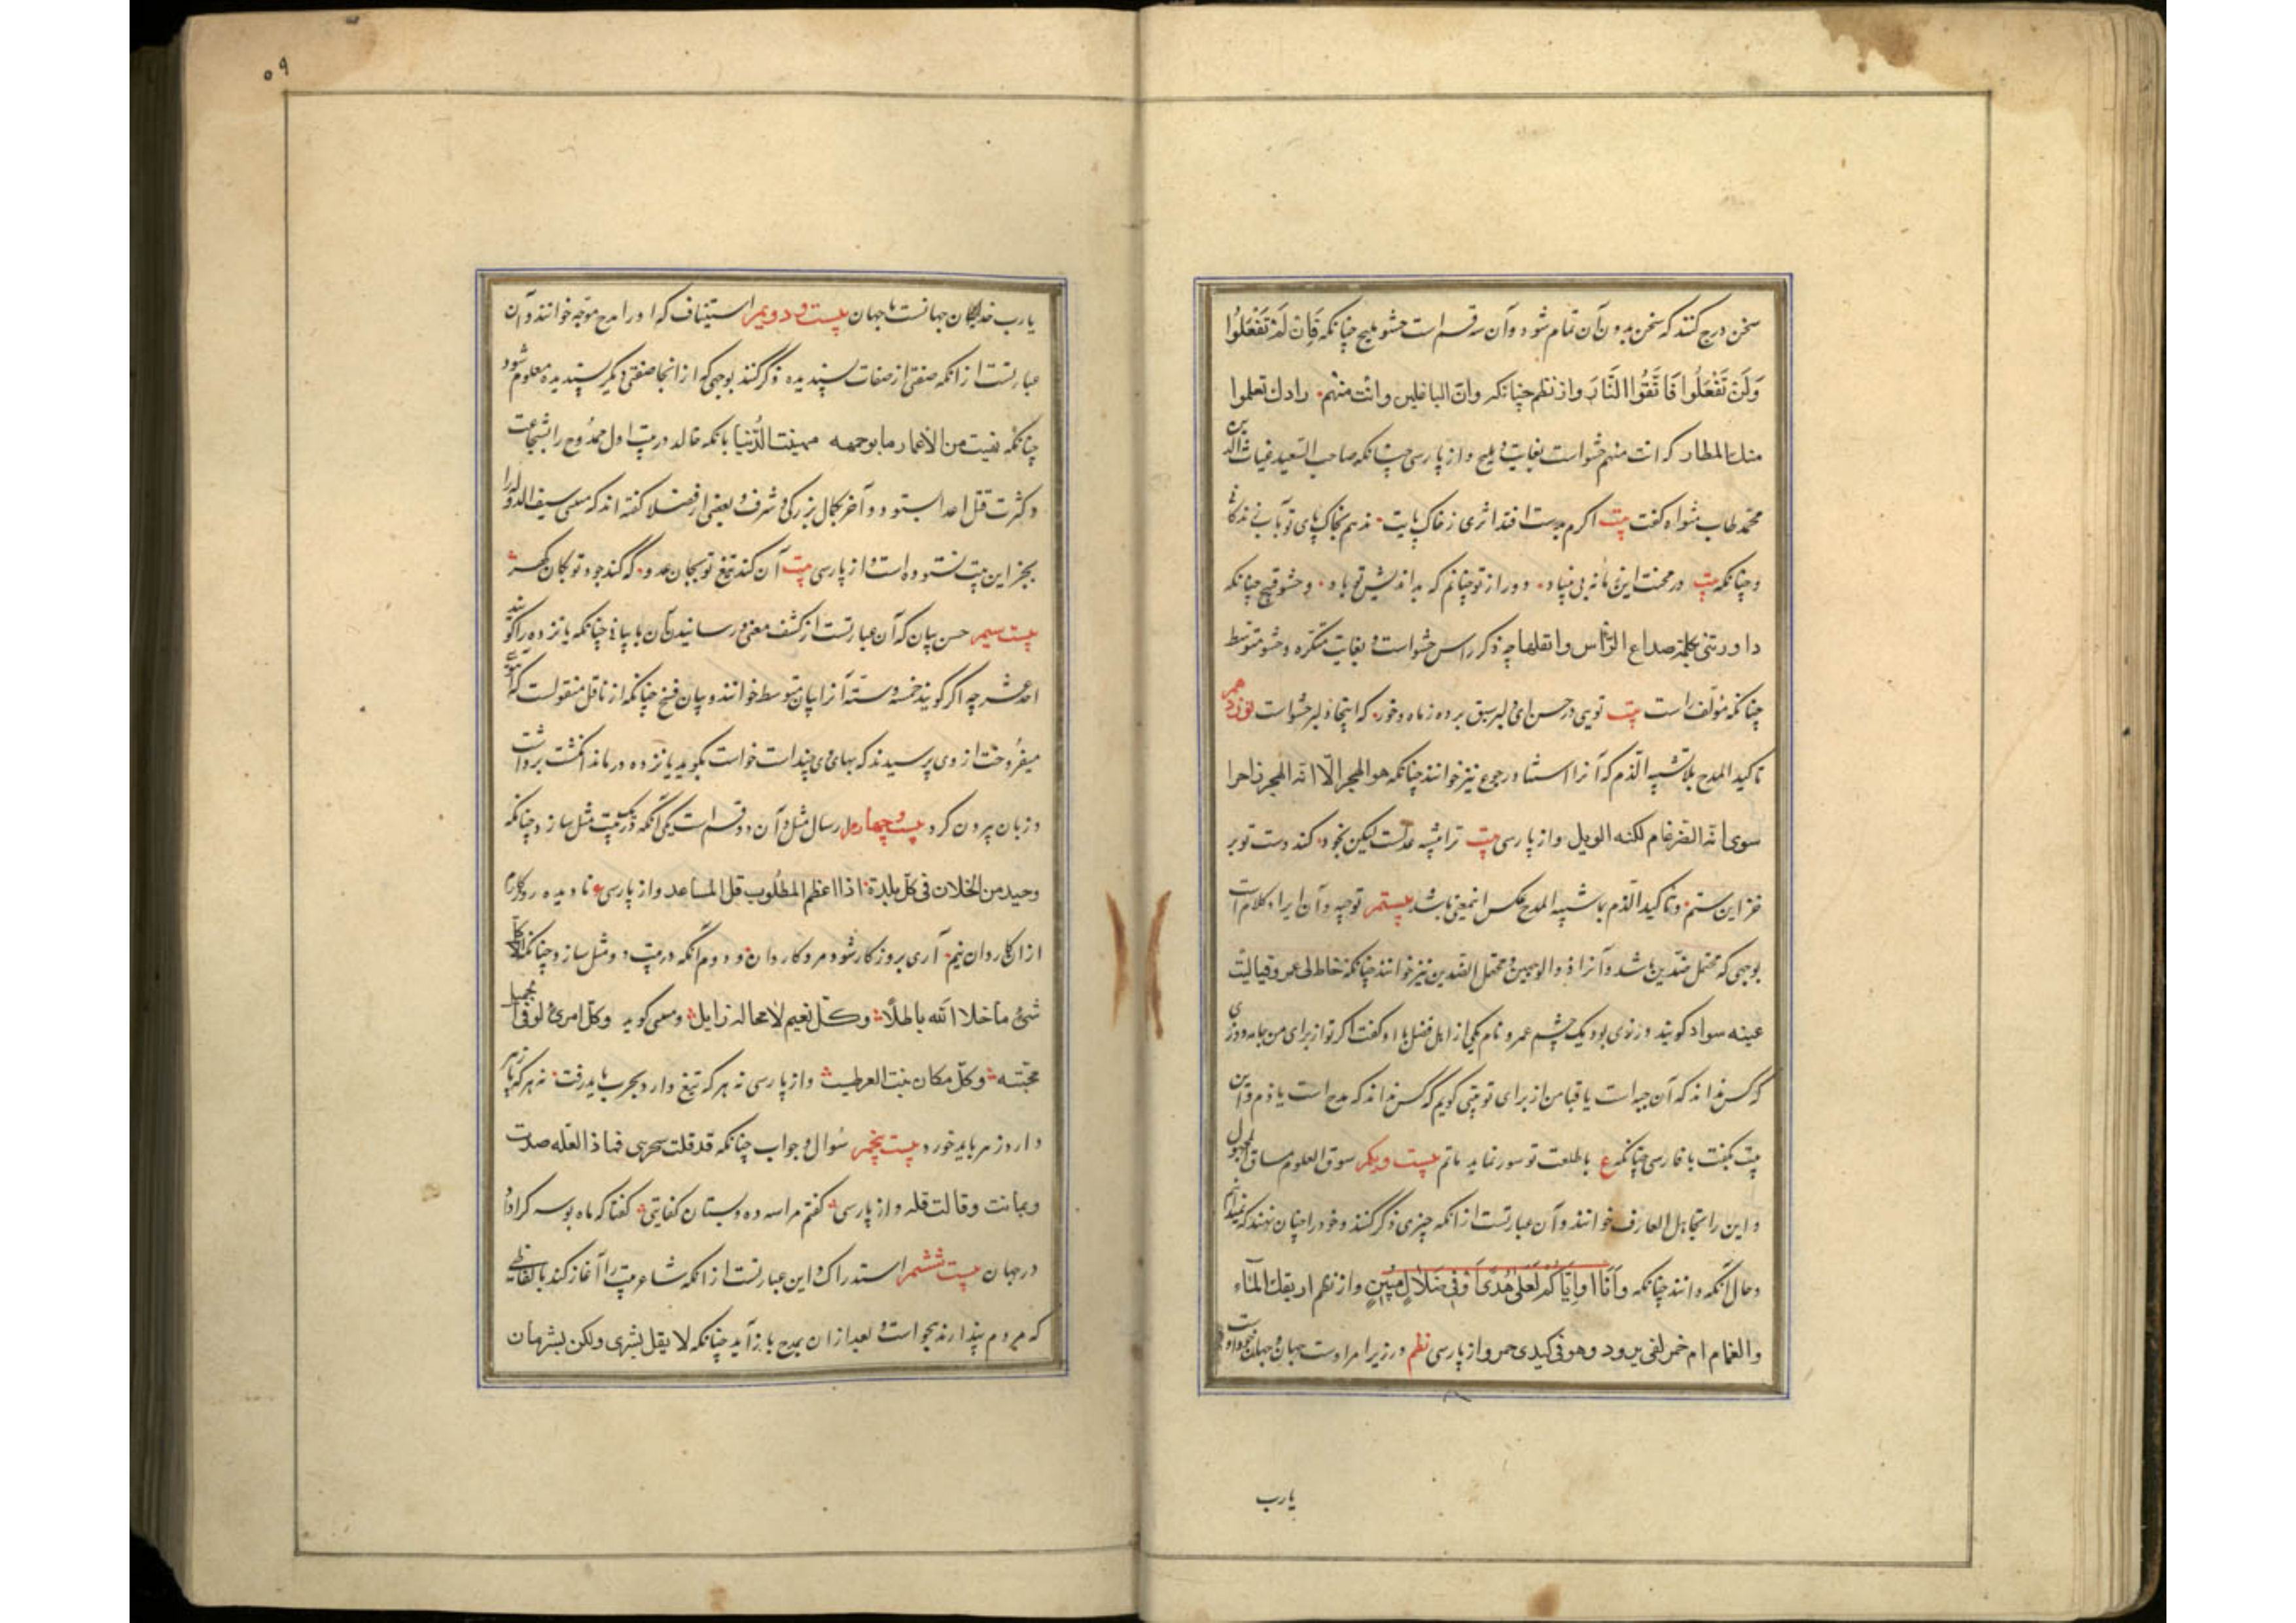 سخن درج کنند که سخن بدون آن تمام شود و آن سه قسم است حشو ملیح چنانکه فَاِنْ لَمْ تَفْعَلُوا
وَلَنْ تَفْعَلُوا فَاتَّقُوا النَّارَ و از نظم چنانکه وان الباخلین وانت منهم رادك تعلموا
منك المطار که انت منهم حشو است بغایت ملیح و از پارسی چنانکه صاحب السعید غیاث الدین
محمد طاب مثواه گفت بیت اکرم بدست افتد اثری ز خاک پایت ندهم بخاک پای تو بآب زندگانی
و چنانکه بیت در محنت این زمانه بی بنیاد دور از تو چنانم که بداندیش تو باد و حشو قبیح چنانکه
صداع الرأس چه ذکر راس حشو است بغایت متکره و حشو متوسط
چنانکه مؤلف راست بیت تویی در حسن ای دلبر سبق برده ز ماه و خور که اینجا دلبر حشو است نوزدهم
تاکید المدح بما یشبه الذم که آنرا استثنا و رجوع نیز خوانند چنانکه هو البحر الّا انه البحر زاخرا
سوی انه الضرغام لکنه الوبل و از پارسی بیت ترا پیشه عدلست لیکن بجود کند دست تو بر
خزاین ستم و تاکید الذم بما یشبه المدح عکس این معنی باشد بیستم توجیه و آن ایراد کلام است
بوجهی که محتمل ضدین باشد و آنرا ذوالوجهین و محتمل الضدین نیز خوانند چنانکه خاط لی عمرو قبا لیت
عینه سواء گویند درزی بود یک چشم عمرو نام یکی از اهل فضل با او گفت اکر تو از برای من جامه دوزی
که کس نداند که آن جبه است یا قبا من از برای تو بیتی گویم که کس نداند که مدح است یا ذم و این
بیت بگفت یا فارسی چنانکه ع با طلعت تو سور نماید ماتم بیست و یکم سوق العلوم مساق المجهول
و این را تجاهل العارف خوانند و آن عبارتست از آنکه چیزی ذکر کنند و خود را چنان نهند که نمیدانم
و حال آنکه دانند چنانکه وَاَنَّا اَوْ اِیَّاکُمْ لَعَلی هُدًی اَوْ فی ضَلالٍ مُبینٍ و از نظم اریقك ام ماء
الغمام ام خمر لفی برود وهو فی کبدی جمر و از پارسی نظم
یارب
۵۹
یارب خدایکان جهانست یا جهان بیست و دویم استیناف که او را مدح موجه خوانند و آن
عبارتست از آنکه صفتی از صفات پسندیده ذکر کنند بوجهی که از آنجا صفتی دیگر پسندیده معلوم شود
چنانکه نهبت من الاعمار ما لو حویته لهنئت الدُنیا بانک خالد در بیت اول ممدوح را بشجاعت
و کثرت قتل اعدا بستود و آخر بکمال بزرگی و شرف و بعضی از فضلا گفته اند که متنبی سیف الدوله را
بجز این بیت نستوده است و از پارسی بیت آن کند تیغ تو بجان عدو که کند جود تو بکان گهر
بیست سیم حسن بیان که آن عبارتست از کشف معنی و رسانیدن آن با بیانی چنانکه یازده را گویند
احد عشر چه اکر گویند خمسه و سته آنرا بیان متوسط خوانند و بیان قبیح چنانکه از ناقل منقولست که آهوی
میفروخت از وی پرسیدند که بهای وی چند است خواست بگوید یازده درماند انگشت برداشت
و زبان بیرون کرد بیست و چهارم ارسال مثل و آن دو قسم است یکی آنکه در یک بیت مثل سازد چنانکه
وحید من الخلان فی کل بلدة اذا عظم المطلوب قل المساعد و از پارسی ع نا دیده روزگارم
از ان کاردان نیم آری بروز کار شود مرد کاردان و دوم آنکه در بیت دو مثل سازد چنانکه الا کل
شئ ما خلا الله باطلا وکل نعیم لا محاله زایل و متنبی گوید وکل امرئ یولی الجمیل
محبته وکل مکان ینبت العز طیب و از پارسی نه هر که تیغ دارد بحرب باید رفت نه هر که پا زهر
دارد زهر باید خورد بیست پنجم سُوال و جواب چنانکه قد قلت هجرنی فما ذا العلّه صدت
وتمایلت وقالت قله و از پارسی گفتم مرا سه ده دلستان گفتا که ماه بوسه کرا داد
در جهان بیست ششم استدراک و این عبارتست از آنکه شاعر بیت را آغاز کند بالفاظی
که مردم پندارند هجو است و بعد از آن بمدح باز آید چنانکه لا تقل بشری ولکن بشریان